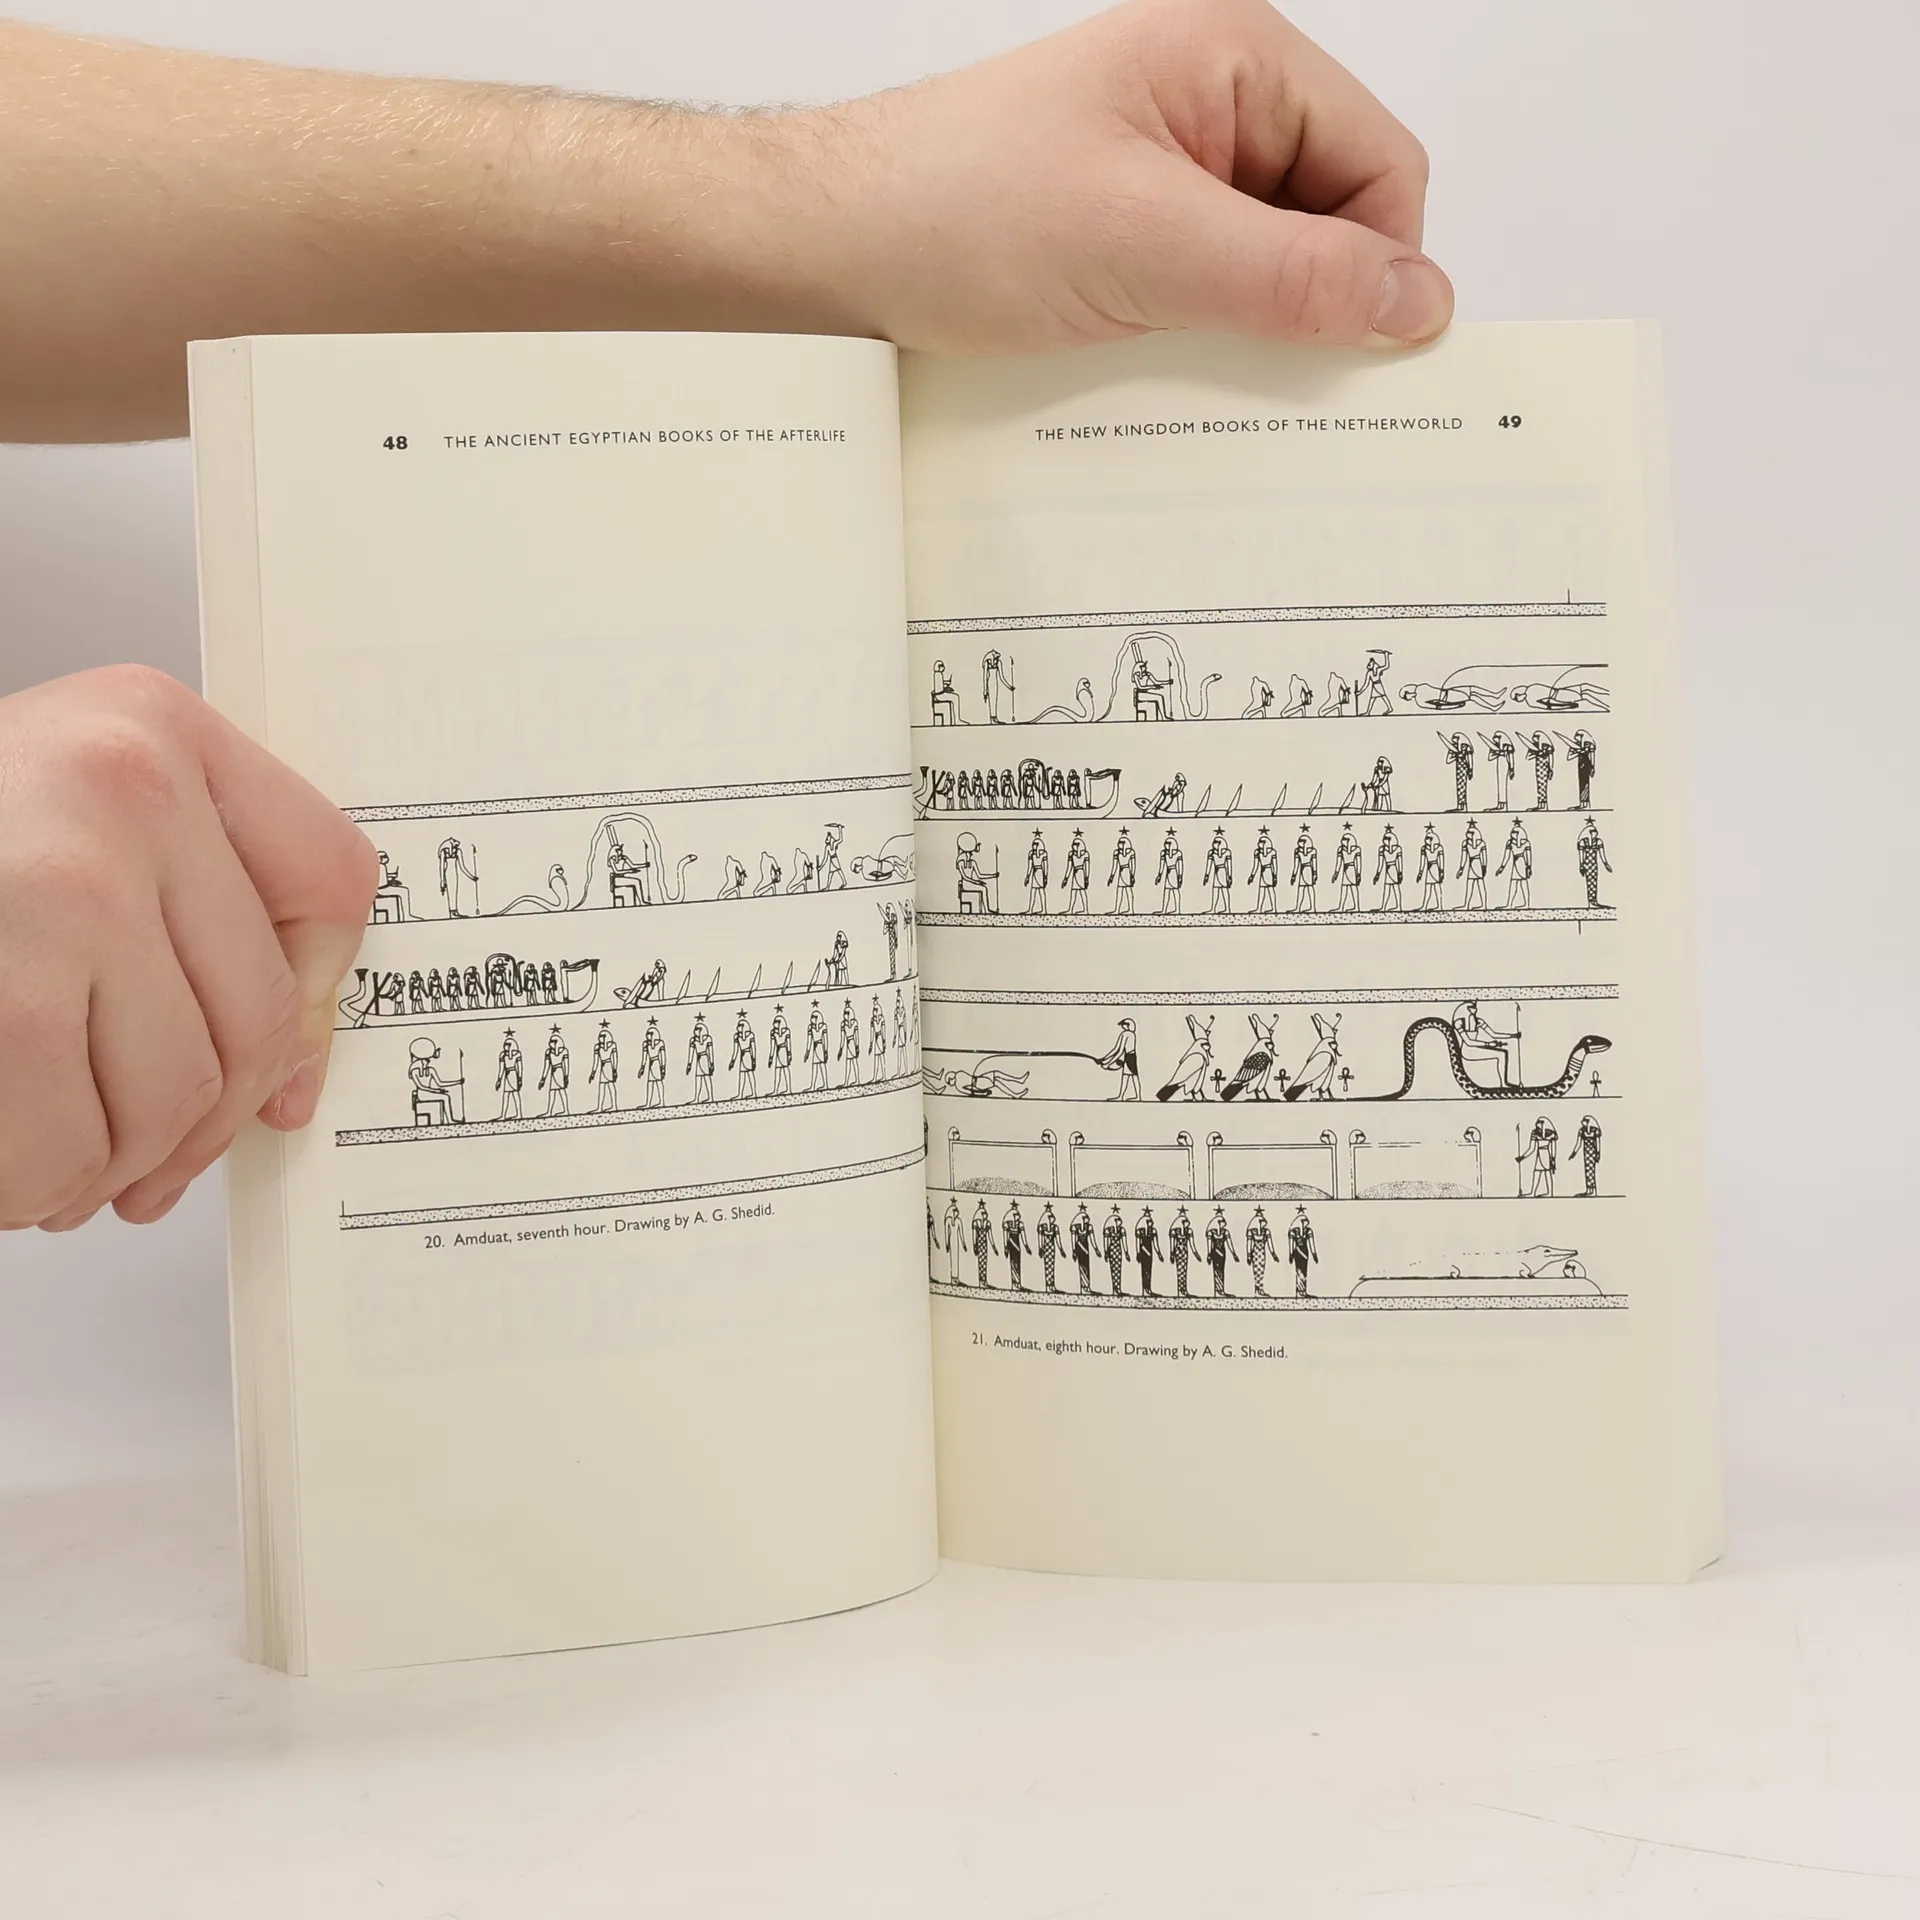 48 THE ANCIENT EGYPTIAN BOOKS OF THE AFTERLIFE
20. Amduat, seventh hour. Drawing by A. G. Shedid.
THE NEW KINGDOM BOOKS OF THE NETHERWORLD 49
21. Amduat, eighth hour. Drawing by A. G. Shedid.